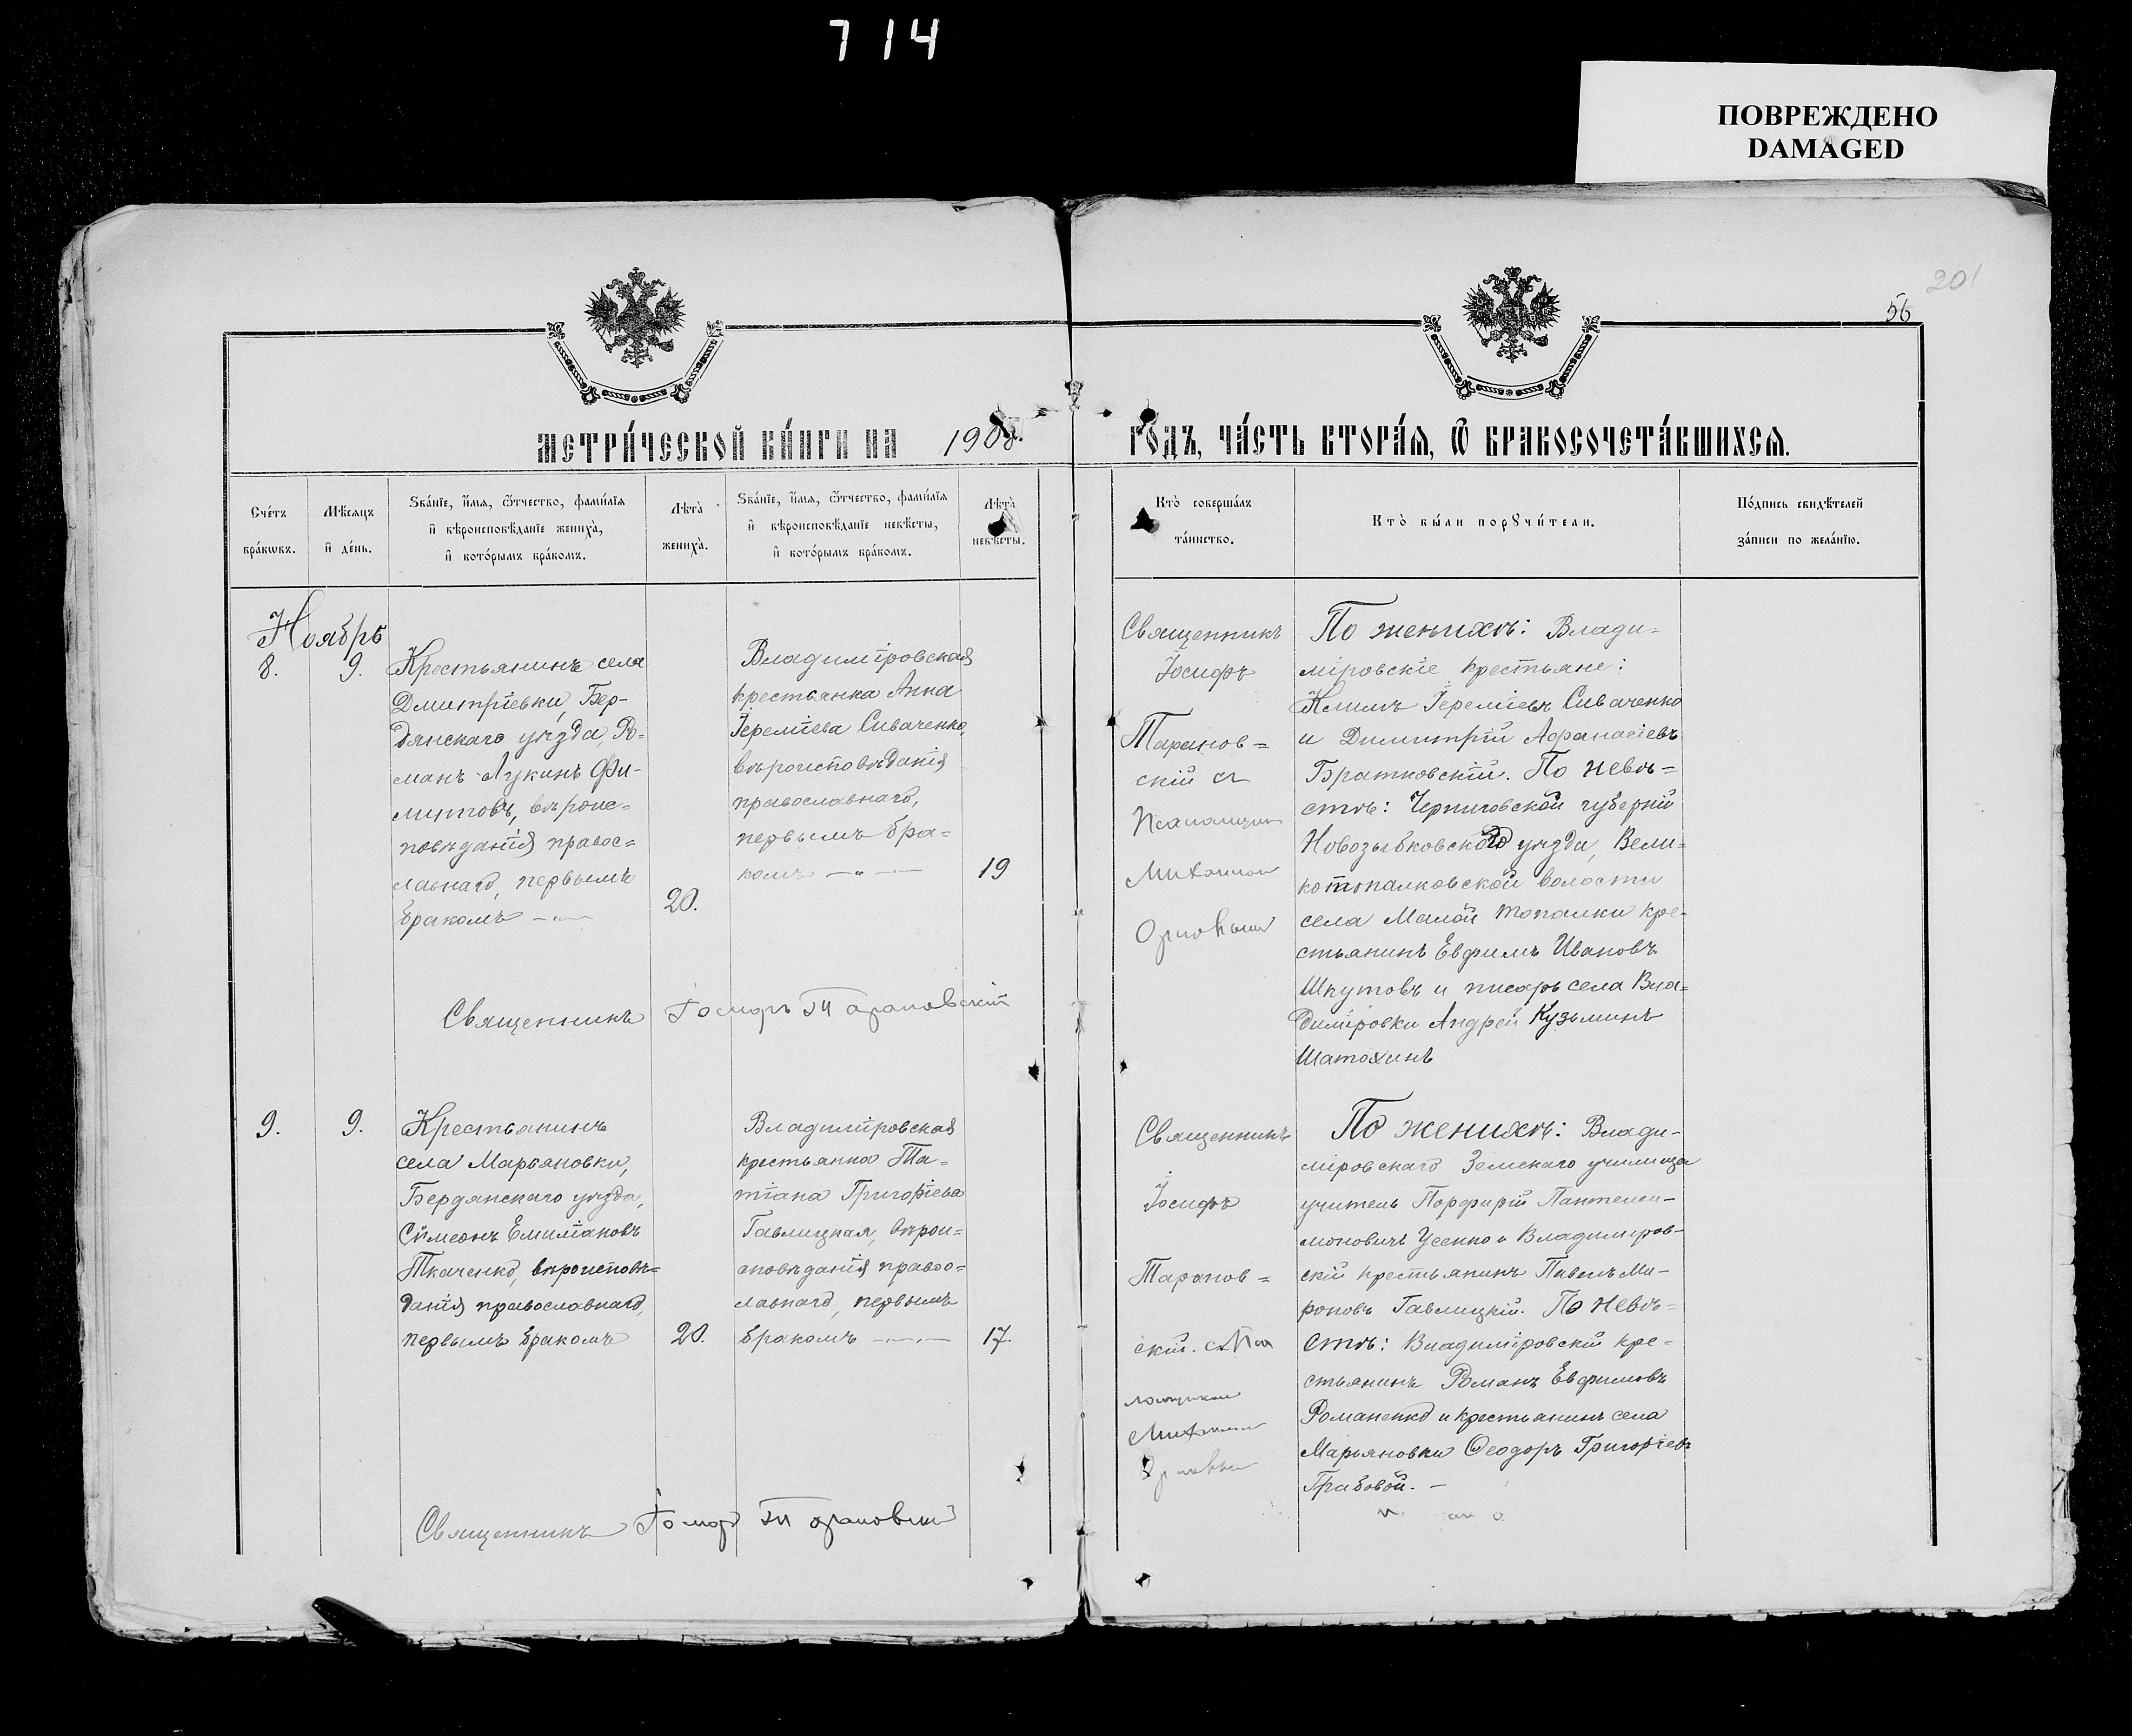 714
ПОВРЕЖДЕНО
DAMAGED
201
56
МЕТРИ́ЧЕСКОЙ КНИ́ГИ НА 1908. ГО́ДЪ, ЧА́СТЬ ВТОРА́Я, Ѿ БРАКОСОЧЕТА́ВШИХСЯ.
Сче́тъ
бра́кѡвъ.
Мѣ́сяцъ
и҆ де́нь.
Ѕва́нїе, и҆́мя, ѻ҆́тчество, фами́лїя
и҆ вѣроисповѣ́данїе жениха̀,
и҆ кото́рымъ бра́комъ.
Лѣта̀
жениха̀.
Ѕва́нїе, и҆́мя, ѻ҆́тчество, фами́лїя
и҆ вѣроисповѣ́данїе невѣ́сты,
и҆ кото́рымъ бра́комъ.
Лѣта̀
невѣ́сты.
Кто̀ соверша́лъ
та́инство.
Кто̀ бы́ли порꙋчи́тели.
По́дпись свидѣ́телей
за́писи по жела́нїю.
Ноябрь
8.
9.
Крестьянинъ села
Дмитріевки, Бер-
дянскаго уѣзда, Ро-
манъ Лукинъ Фи-
липовъ, вѣроис-
повѣданія правос=
лавнаго, первымъ
бракомъ
20.
Владиміровская
крестьянка Анна
Іереміева Сиваченко,
вѣроисповѣданія
православнаго,
первымъ бра=
комъ
19
Священникъ
Іосифъ
Таранов=
скій съ
Псаломщик
Михаилом
По женихѣ: Влади=
міровскіе крестьяне:
Климъ Іереміевъ Сиваченко
и Димитрій Афанасіевъ
Братковскій. По невѣ=
стѣ: Черниговской губерніи
Новозыбковскаго уѣзда, Вели=
котопалковской волости
села Малой Топалки кре-
стьянинъ Евфимъ Ивановъ
Шкутовъ и писарь села Вла=
диміровки Андрей Кузьминъ
Шатохинъ
Священникъ Іосифъ Тарановскій
9.
9.
Крестьянинъ
села Марьяновки,
Бердянскаго уѣзда,
Симеонъ Емиліановъ
Ткаченко, вѣроисповѣ=
данія православнаго,
первымъ бракомъ
20.
Владиміровская
крестьянка Та=
тіана Григоріева
Гавлицкая, вѣрои=
сповѣданія правос=
лавнаго, первымъ
бракомъ
17.
Священникъ
Іосифъ
Таранов=
скій. съ Пса
ломщикомъ
Михаилом
По женихѣ: Влади-
міровскаго Земскаго училища
учитель Порфирій Пантелеи-
моновичъ Усенко и Владиміров-
скій крестьянинъ Павелъ Ми-
роновъ Гавлицкій. По невѣ=
стѣ: Владиміровскій кре-
стьянинъ Романъ Евфимовъ
Романенко и крестьянинъ села
Марьяновки Ѳеодоръ Григоріевъ
Грабовой. –
Священникъ Іосиф Тарановскій